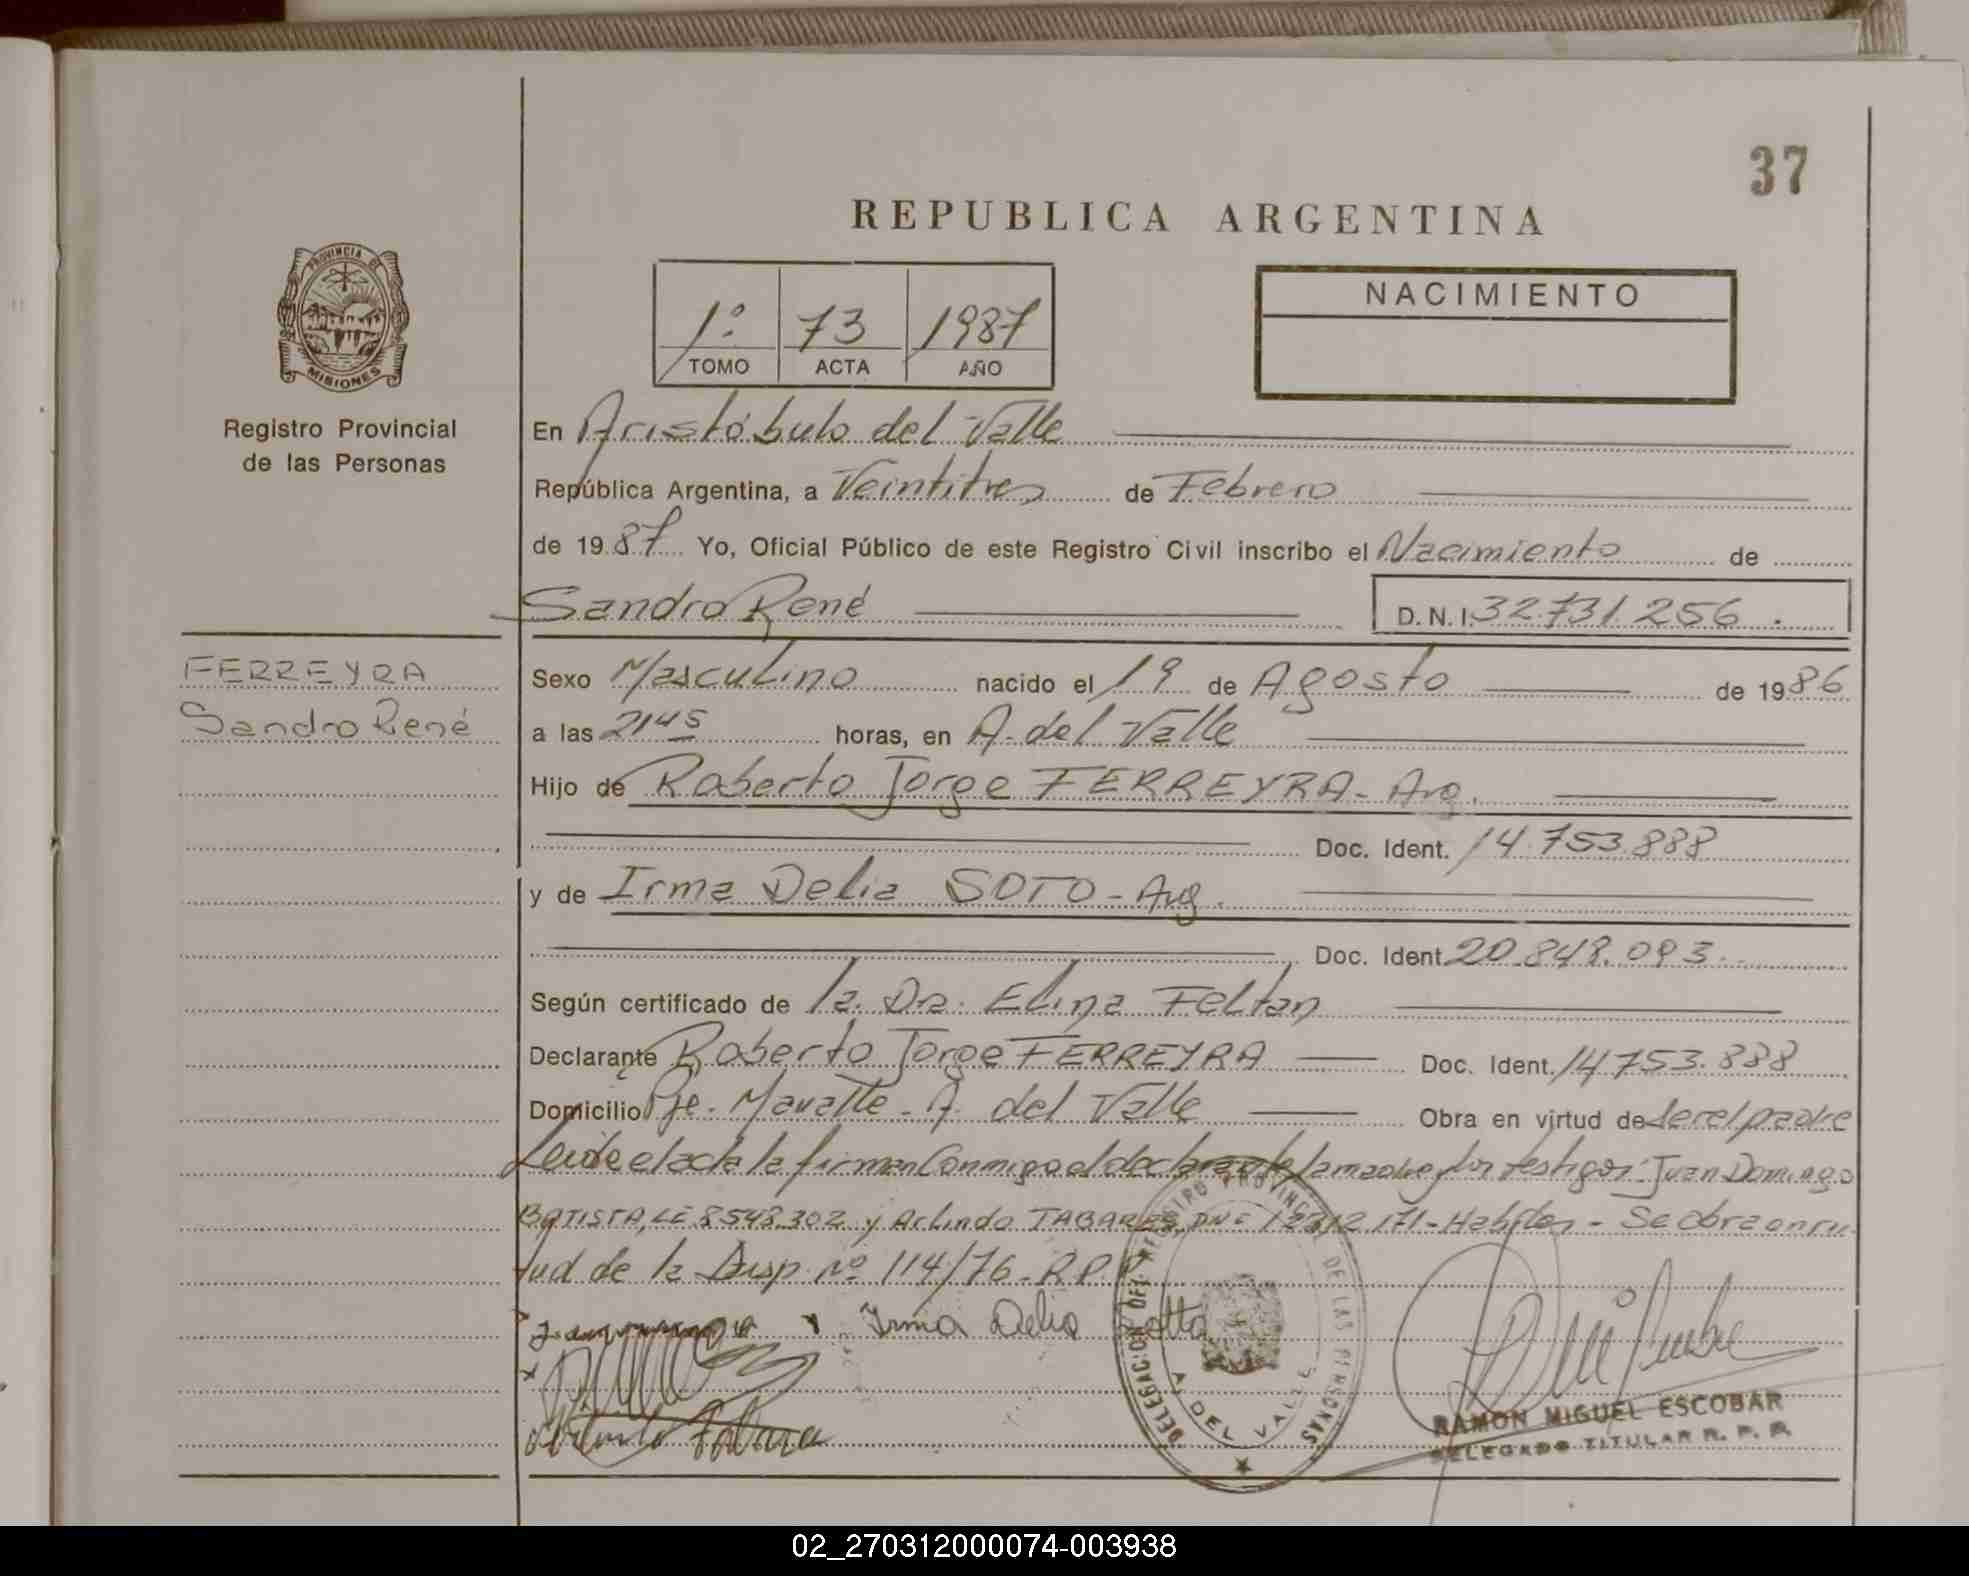 37
REPUBLICA ARGENTINA
PROVINCIA DE
MISIONES
Registro Provincial
de las Personas
1º 73 1987
TOMO ACTA AÑO
NACIMIENTO
En Aristóbulo del Valle
República Argentina, a Veintitres de Febrero
de 1987 Yo, Oficial Público de este Registro Civil inscribo el Nacimiento de
Sandro René D.N.I. 32.731.256.
FERREYRA
Sandro René
Sexo Masculino nacido el 19 de Agosto de 1986
a las 21 45 horas, en A. del Valle
Hijo de Roberto Jorge FERREYRA - Arg.
Doc. Ident. 14.753.888
y de Irma Delia SOTO - Arg.
Doc. Ident. 20.848.093.
Según certificado de la Dra. Elina Feltan
Declarante Roberto Jorge FERREYRA Doc. Ident. 14.753.888
Domicilio Pje. Mavalle - A. del Valle Obra en virtud de ser el padre
Leida el acta la firman conmigo el declarante la madre y los testigos: Juan Domingo
BATISTA, LE 8.548.302 y Arlindo TABAREZ, - Habiles - Se obra en vir
tud de la Disp. Nº 114/76 - R.P.P.
Irma Delia Sotto
DELEGACION DEL REGISTRO PROVINCIAL DE LAS PERSONAS
A. DEL VALLE
RAMON MIGUEL ESCOBAR
DELEGADO TITULAR R. P. P.
02_270312000074-003938